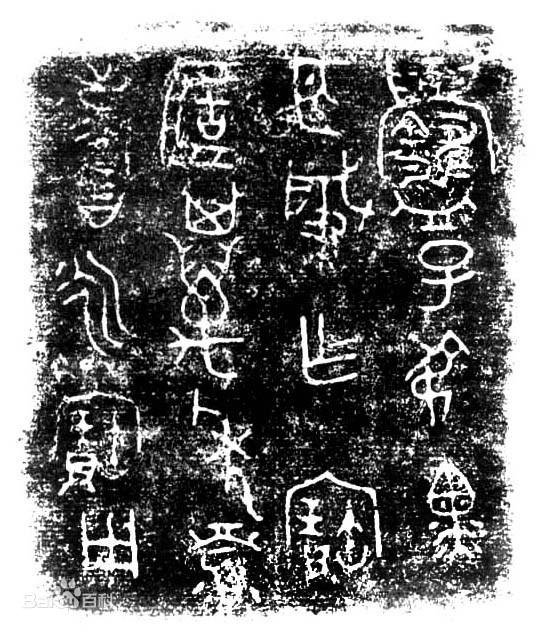 鑄子叔黑
臣肇作寶
簠其萬年眉
壽永寶用
Baidu百科